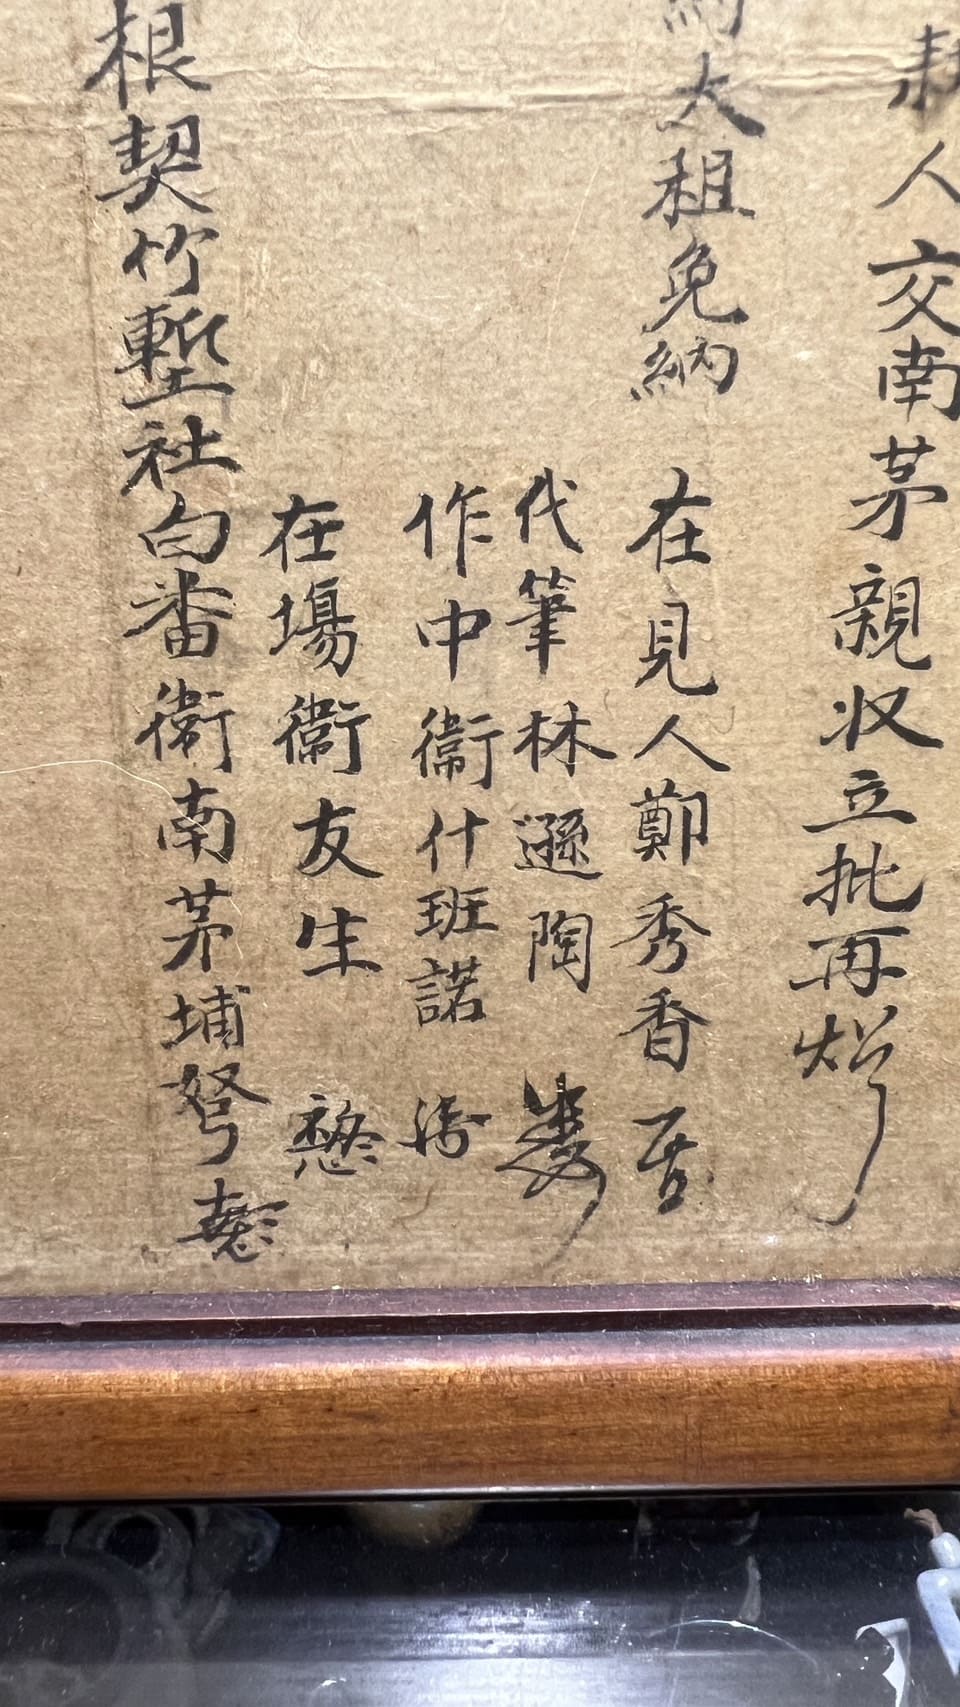 人交南茅親収立批再炤
大租免納
在見人鄭秀香
代筆林遜陶
作中衞什班諾
在塲衞友生
根契竹塹社白番衞南茅埔